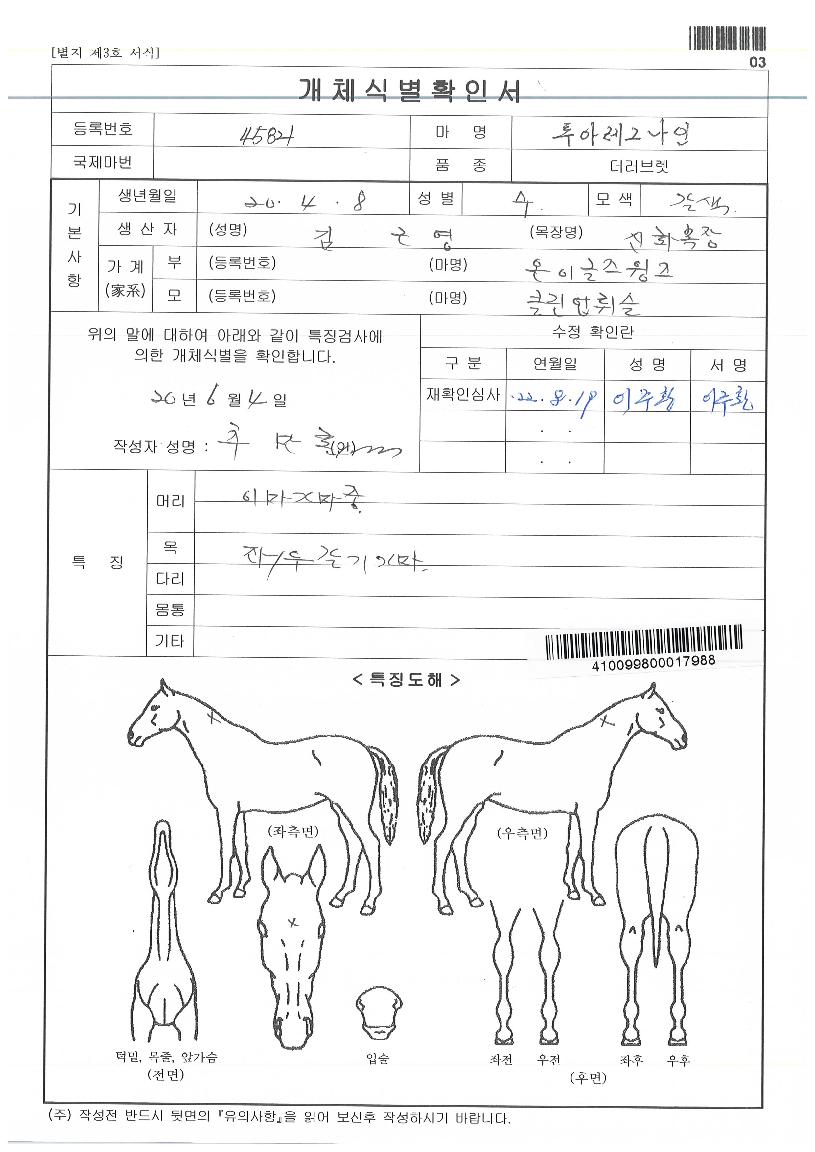 [별지 제3호 서식]
03
개체식별확인서
등록번호 45821 마 명 투아레그나인
국제마번 품 종 더러브렛
기본사항
생년월일 20. 4. 8 성별 수 모색 갈색.
생 산 자 (성명) 김 근 영 (목장명) 진화목장
가계 (家系) 부 (등록번호) (마명) 온이글즈윙즈
모 (등록번호) (마명) 클린업휘슬
위의 말에 대하여 아래와 같이 특징검사에
의한 개체식별을 확인합니다.
20 년 6 월 4 일
작성자 성명 :
수정 확인란
구 분 연월일 성 명 서 명
재확인심사 22. 8. 19 이주환 이주환
. .
. .
특 징
머리 이마가마중.
목 좌/우 갈기가마.
다리
몸통
기타
410099800017988
< 특징도해 >
(좌측면) (우측면)
턱밑, 목줄, 앞가슴 입술 좌전 우전 좌후 우후
(전면) (후면)
(주) 작성전 반드시 뒷면의 『유의사항』을 읽어 보신후 작성하시기 바랍니다.